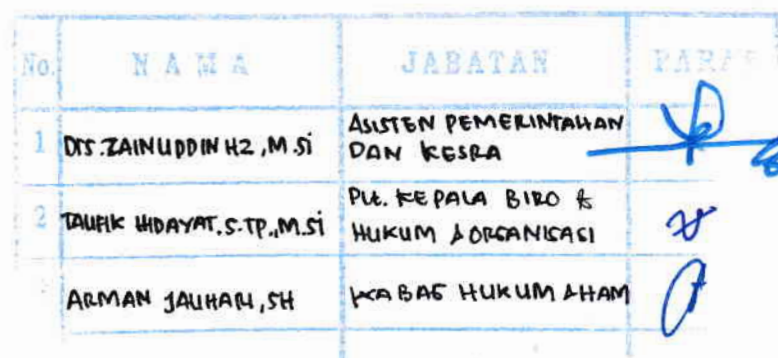 No. NAMA JABATAN PARAF
1 Drs. ZAINUDDIN HZ, M.Si ASISTEN PEMERINTAHAN
DAN KESRA
2 TAUFIK HIDAYAT. S.TP., M.Si PLt. KEPALA BIRO
HUKUM & ORGANISASI
ARMAN JAUHARI, SH KABAG HUKUM & HAM